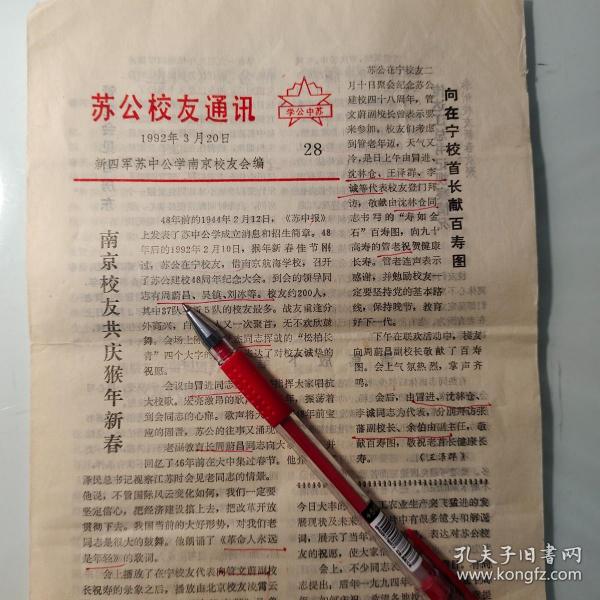 苏公校友通讯
1992年3月20日
新四军苏中公学南京校友会编
28
学公中苏
南京校友共庆猴年新春
48年前的1944年2月12日,《苏中报》
上发表了苏中公学成立消息和招生简章。48
年后的1992年2月10日,猴年新春佳节刚
过,苏公在宁校友,借南京航海学校,召开
了苏公建校48周年纪念大会。到会的领导同
志有周蔚昌、吴镇、刘冰等。校友约200人,
其中37队
5队的校友最多。战友重逢分
外高兴,
又一次聚首,无不欢欣鼓
舞。会场上
同志挥
的“松柏长
青”四个大字
表达了对校友诚挚的
祝愿。
会议由冒进同志
指挥大家唱抗
大校歌。
亮激昂的歌
,振荡着
到会同志的心扉。歌声将
48年前宝
应的固晋,苏公的往事又涌现
老副教育长周蔚昌同志向大家
回忆了46年前在大中集过春节。他介
泽民总书记视察江苏时会见老同志的情景。
他说,不管国际风云变化如何,我们一定要
坚定信心,把经济建设搞上去,把改革开放
贯彻下去。我国当前的大好形势,对我们老
同志是很大的鼓舞。他朗诵了《革命人永远
是年轻》的歌词。
会上播放了在宁校友代表向管文蔚副校
长祝寿的录象之后,播放由北京校友凌霄云
向在宁校首长献百寿图
苏公在宁校友二
月十日聚会纪念苏公
建校四十八周年,管
文蔚副校长曾表示要
来参加。校友们考虑
到管老年迈,天气又
冷,是日上午由冒进、
沈林仓、王泽群、李
诚等代表校友登门拜
访,敬献由沈林仓同
志书写的“寿如金
石”百寿图,向九十
高寿的管老祝贺健康
长寿。管老连声表示
感谢,并勉励校友一
定要坚持党的基本路
线,保持晚节,教育
好下一代。
下午在联欢活动中,校友
向周蔚昌副校长敬献了百寿
图。会上气氛热烈,掌声齐
鸣。
会后,由冒进、沈林仓、
李诚同志为代表,分别拜访张
藩副校长、余伯由副主任,敬
献百寿图,敬祝老首长健康长
寿。
(王泽群)
今日大丰的
工农业生产突飞猛进的发
展现状及未来
中有很多镜头和解说
词,展示了当年
表达对苏公校
友的祝愿,使大家倍
会上,不少同志
提出,后年一九九四年
孔夫子旧书网
www.kongfz.com